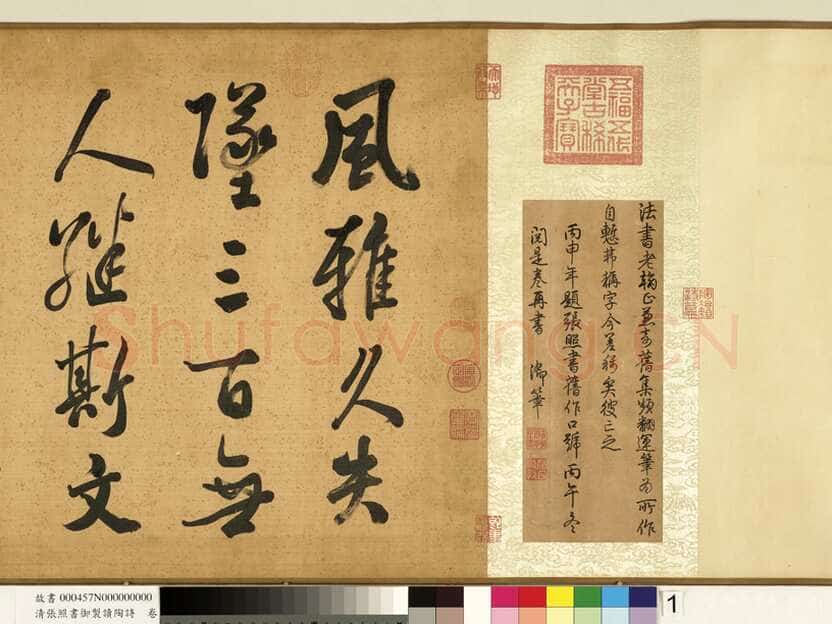 五福五代
堂古稀
天子寶
法書老翰正
舊集頻翻運筆為所作
自慙弗稱字今差稱矣彼已之
丙申年題張照書舊作口號丙午冬
閱是卷再書 御筆
風雅久失
墜三百無
人繼斯文
Shufawang.CN
故書 000457N000000000
清張照書御製讀陶詩 卷
1